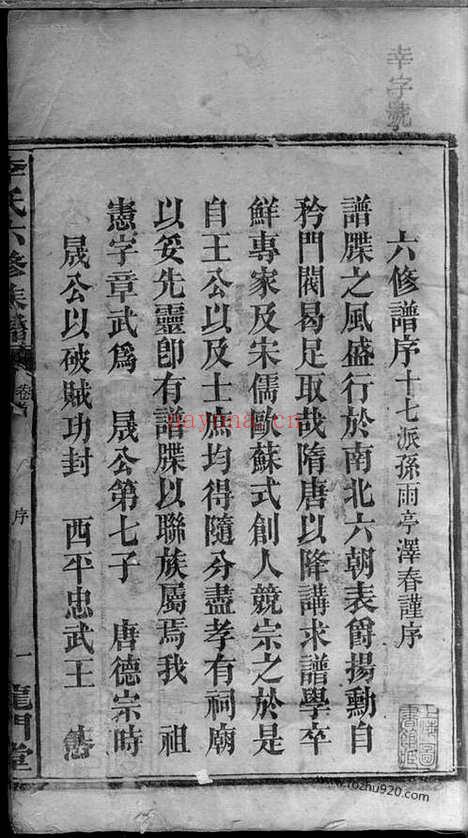 幸字號
六修譜序十七派孫雨亭澤春謹序
譜牒之風盛行於南北六朝表爵揚勳自
矜門閥曷足取哉隋唐以降講求譜學卒
鮮專家及宋儒歐蘇式創人競宗之於是
自王公以及士庶均得隨分盡孝有祠廟
以妥先靈卽有譜牒以聯族屬焉我 祖
憲字章武爲 晟公第七子 唐德宗時
晟公以破賊功封 西平忠武王 憲
李氏六修族譜 卷首 序 一 龍門堂
nayona.cn
www.tozhu920.com